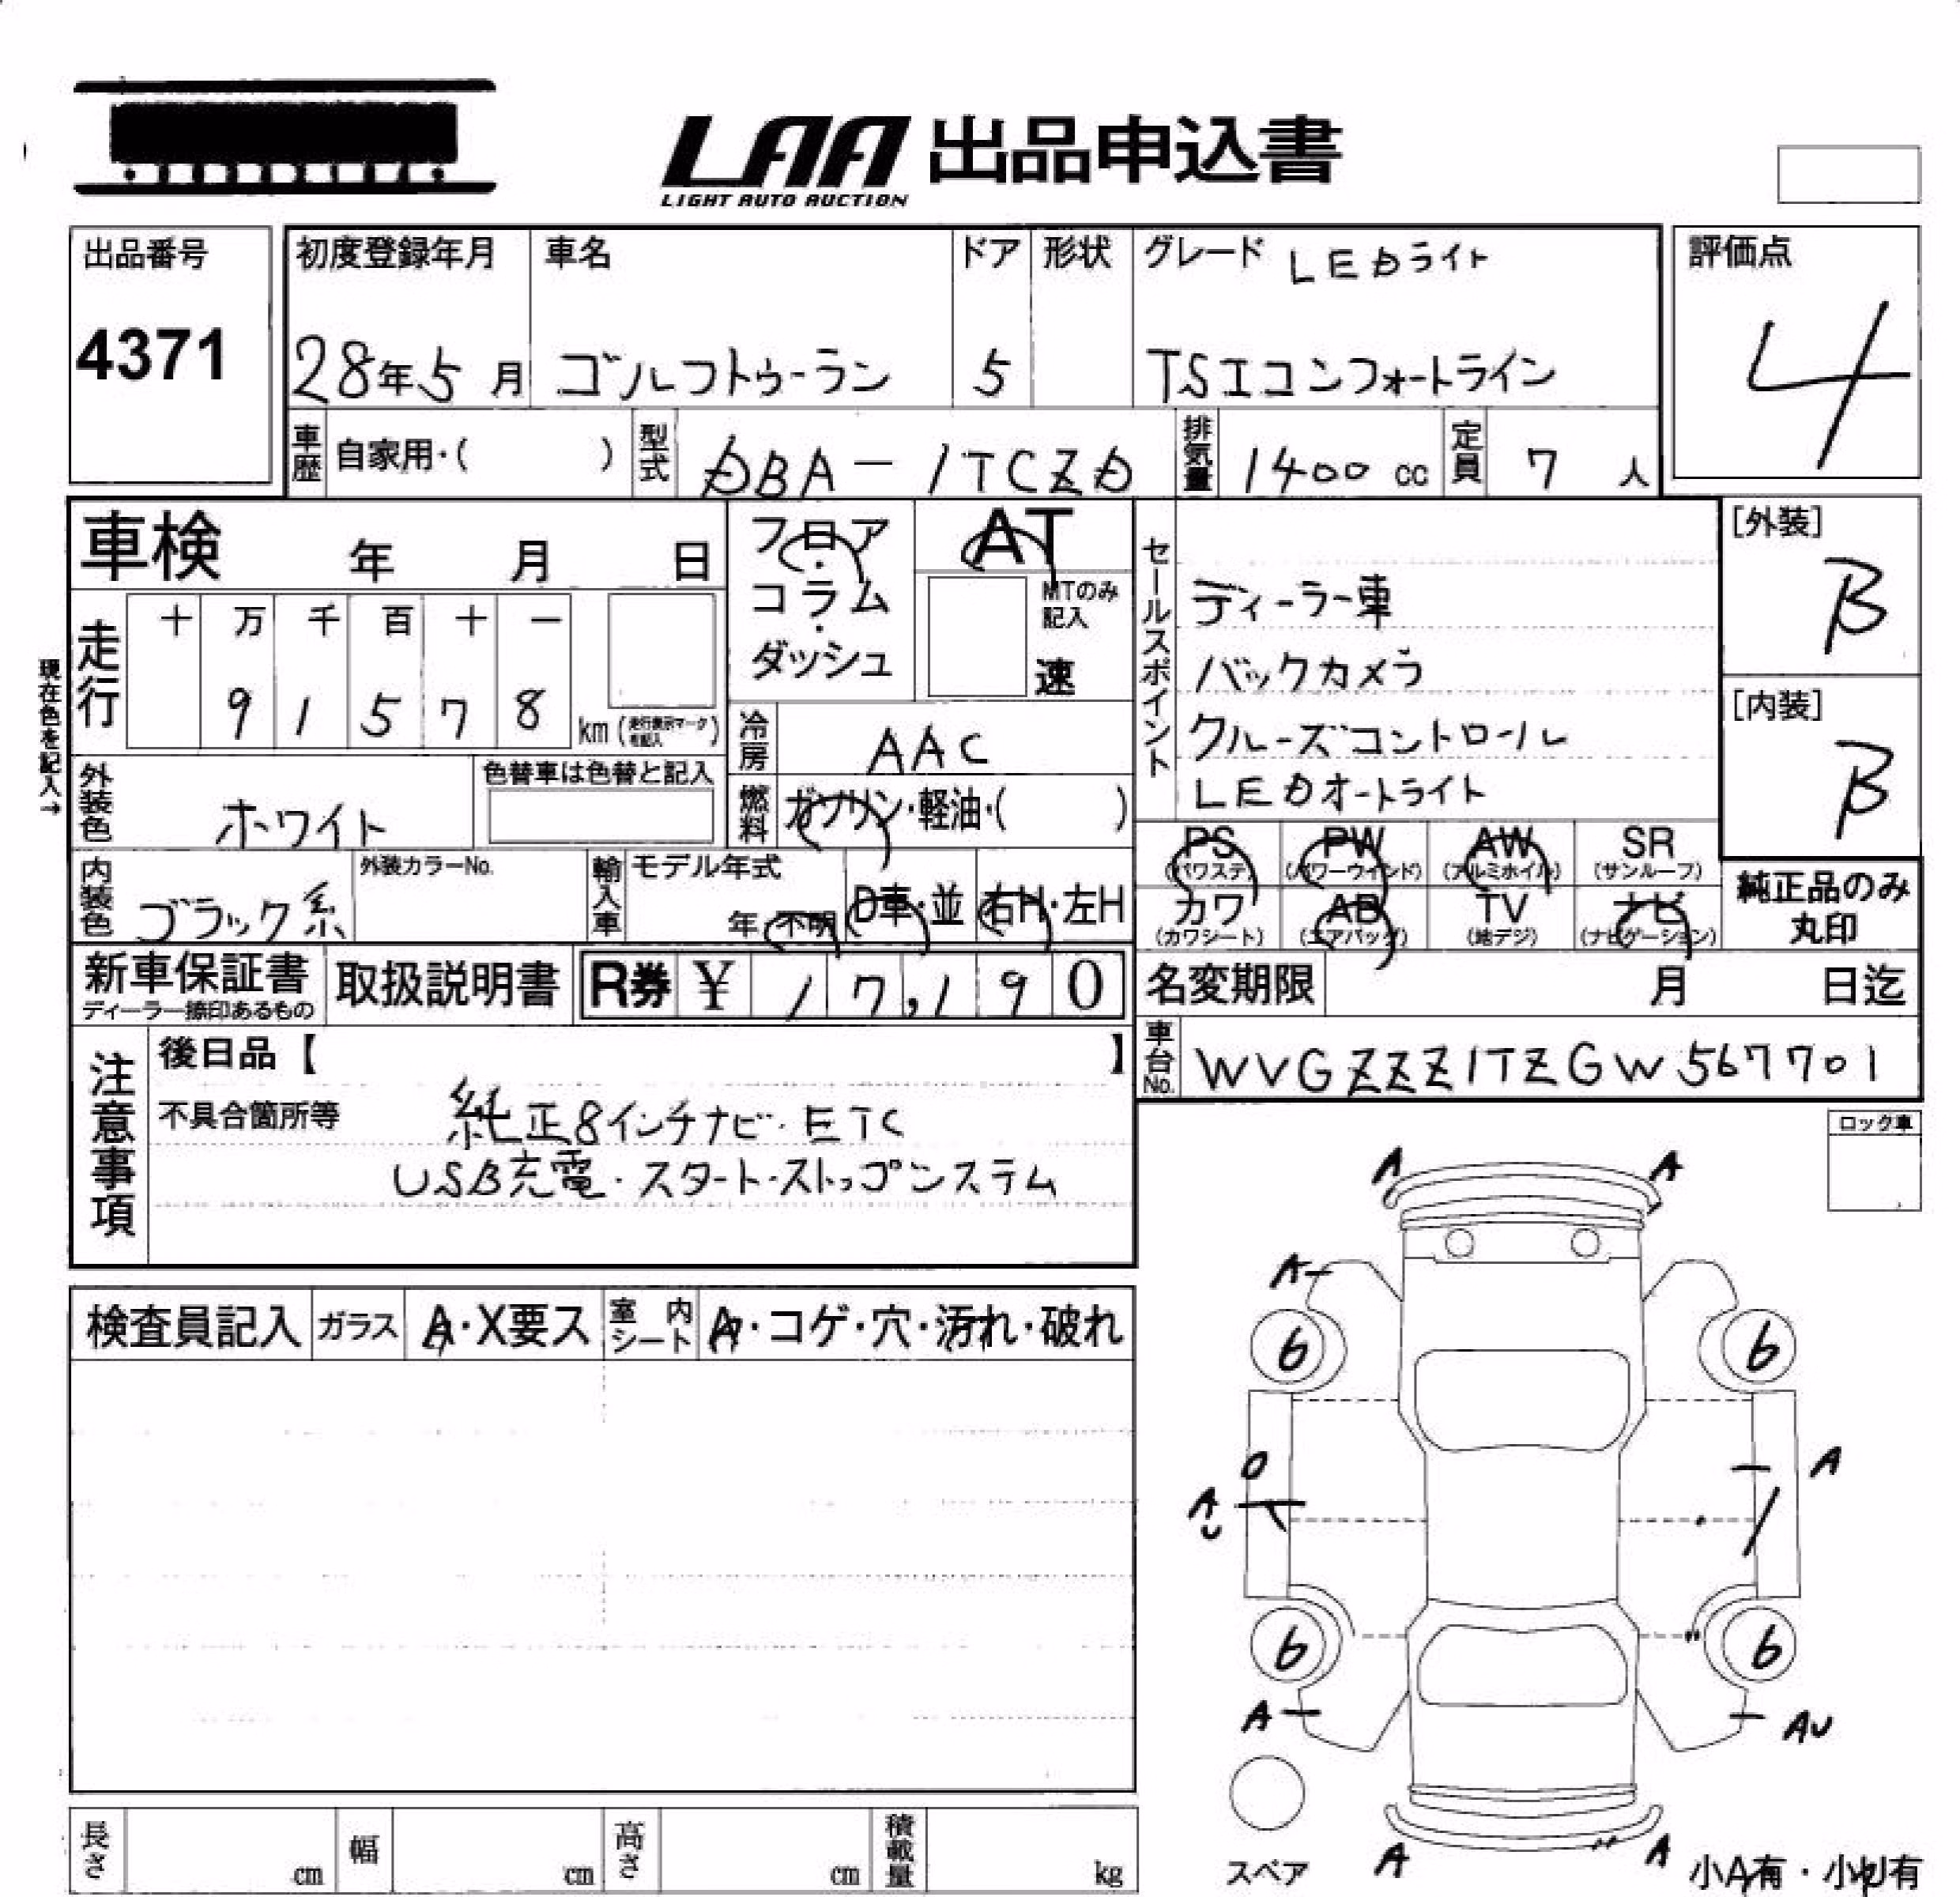 LAA 出品申込書
LIGHT AUTO AUCTION
出品番号
4371
初度登録年月
28年5月
車名
ゴルフトゥーラン
ドア
5
形状
グレード LEDライト
TSIコンフォートライン
評価点
4
車歴 自家用・( )
型式 DBA-1TCZD
排気量 1400 cc
定員 7 人
車検 年 月 日
フロア・コラム・ダッシュ
AT
MTのみ記入
速
セールスポイント
ディーラー車
バックカメラ
クルーズコントロール
LEDオートライト
[外装]
B
[内装]
B
現在色を記入→
走行
十 万 千 百 十 一
9 1 5 7 8
km
冷房 AAC
燃料 ガソリン・軽油・( )
外装色 ホワイト
色替車は色替と記入
内装色 ブラック系
外装カラーNo.
輸入車
モデル年式
年・不明
D車・並
右H・左H
PS (パワステ)
PW (パワーウインド)
AW (アルミホイル)
SR (サンルーフ)
カワ (カワシート)
AB (エアバッグ)
TV (地デジ)
ナビ (ナビゲーション)
純正品のみ
丸印
新車保証書
ディーラー捺印あるもの
取扱説明書
R券 ¥ 17,190
名変期限 月 日迄
車台No. WVGZZZ1TZGW567701
注意事項
後日品【 】
不具合箇所等
純正8インチナビ・ETC
USB充電・スタート・ストップシステム
ロック車
検査員記入
ガラス
A・X要ス
室内シート
A・コゲ・穴・汚れ・破れ
A A
A
6 6
A
A
6 6
A AU
スペア
A A
小A有・小U有
長さ cm
幅 cm
高さ cm
積載量 kg